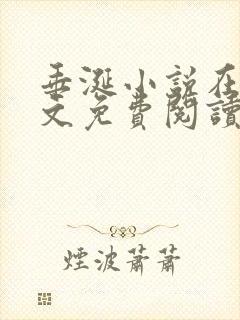 垂涎小説在
文免費閱讀
煙波蕭蕭